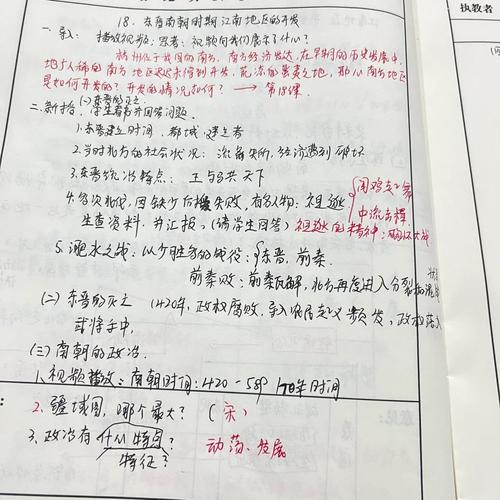 执教者
18. 东晋南朝时期江南地区的开发
一. 导入: 播放视频, 思考: 视频向我们展示了什么?
杭州位于我国的南方, 南方经济发达, 在早期的历史发展中,
地广人稀的南方地区迟迟未得到开发, 那么南方地区
是如何开发的? 开发的情况如何? → 第18课
二. 新授: 学生看书并回答问题.
1. 东晋建立时间、都城、建立者
2. 当时北方的社会状况: 经济遭到破坏
3. 东晋统治特点: 王与马共天下
4. 多次北伐, 因缺少后援失败, 有名人物: 祖逖 闻鸡起舞
中流击楫
生查资料, 并汇报. (请学生回答) 祖逖的精神: 胸怀大志
5. 淝水之战: 以少胜多的战役: 东晋, 前秦.
前秦败: 前秦瓦解, 北方再度进入分裂和混战
(二) 东晋的灭亡 (420年, 政权腐败, 农民起义频发, 政权落入
武将手中.
(三) 南朝的政治.
1. 视频播放: 南朝时间: 420-589 170年时间
2. 疆域图, 哪个最大? (宋)
3. 政治有什么特点?
特征?
动荡、发展